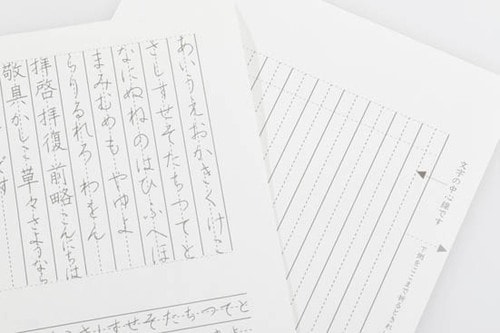 あいうえおかきくけこ
さしすせそたちつてと
なにぬねのはひふへほ
まみむめも やゆよ
らりるれろ わをん
拝啓 拝復 前略 こんにちは
敬具 かしこ 草々 さようなら
です
さ・し・す・せ・そ・た・ち・つ・て・と
文字の中心線です